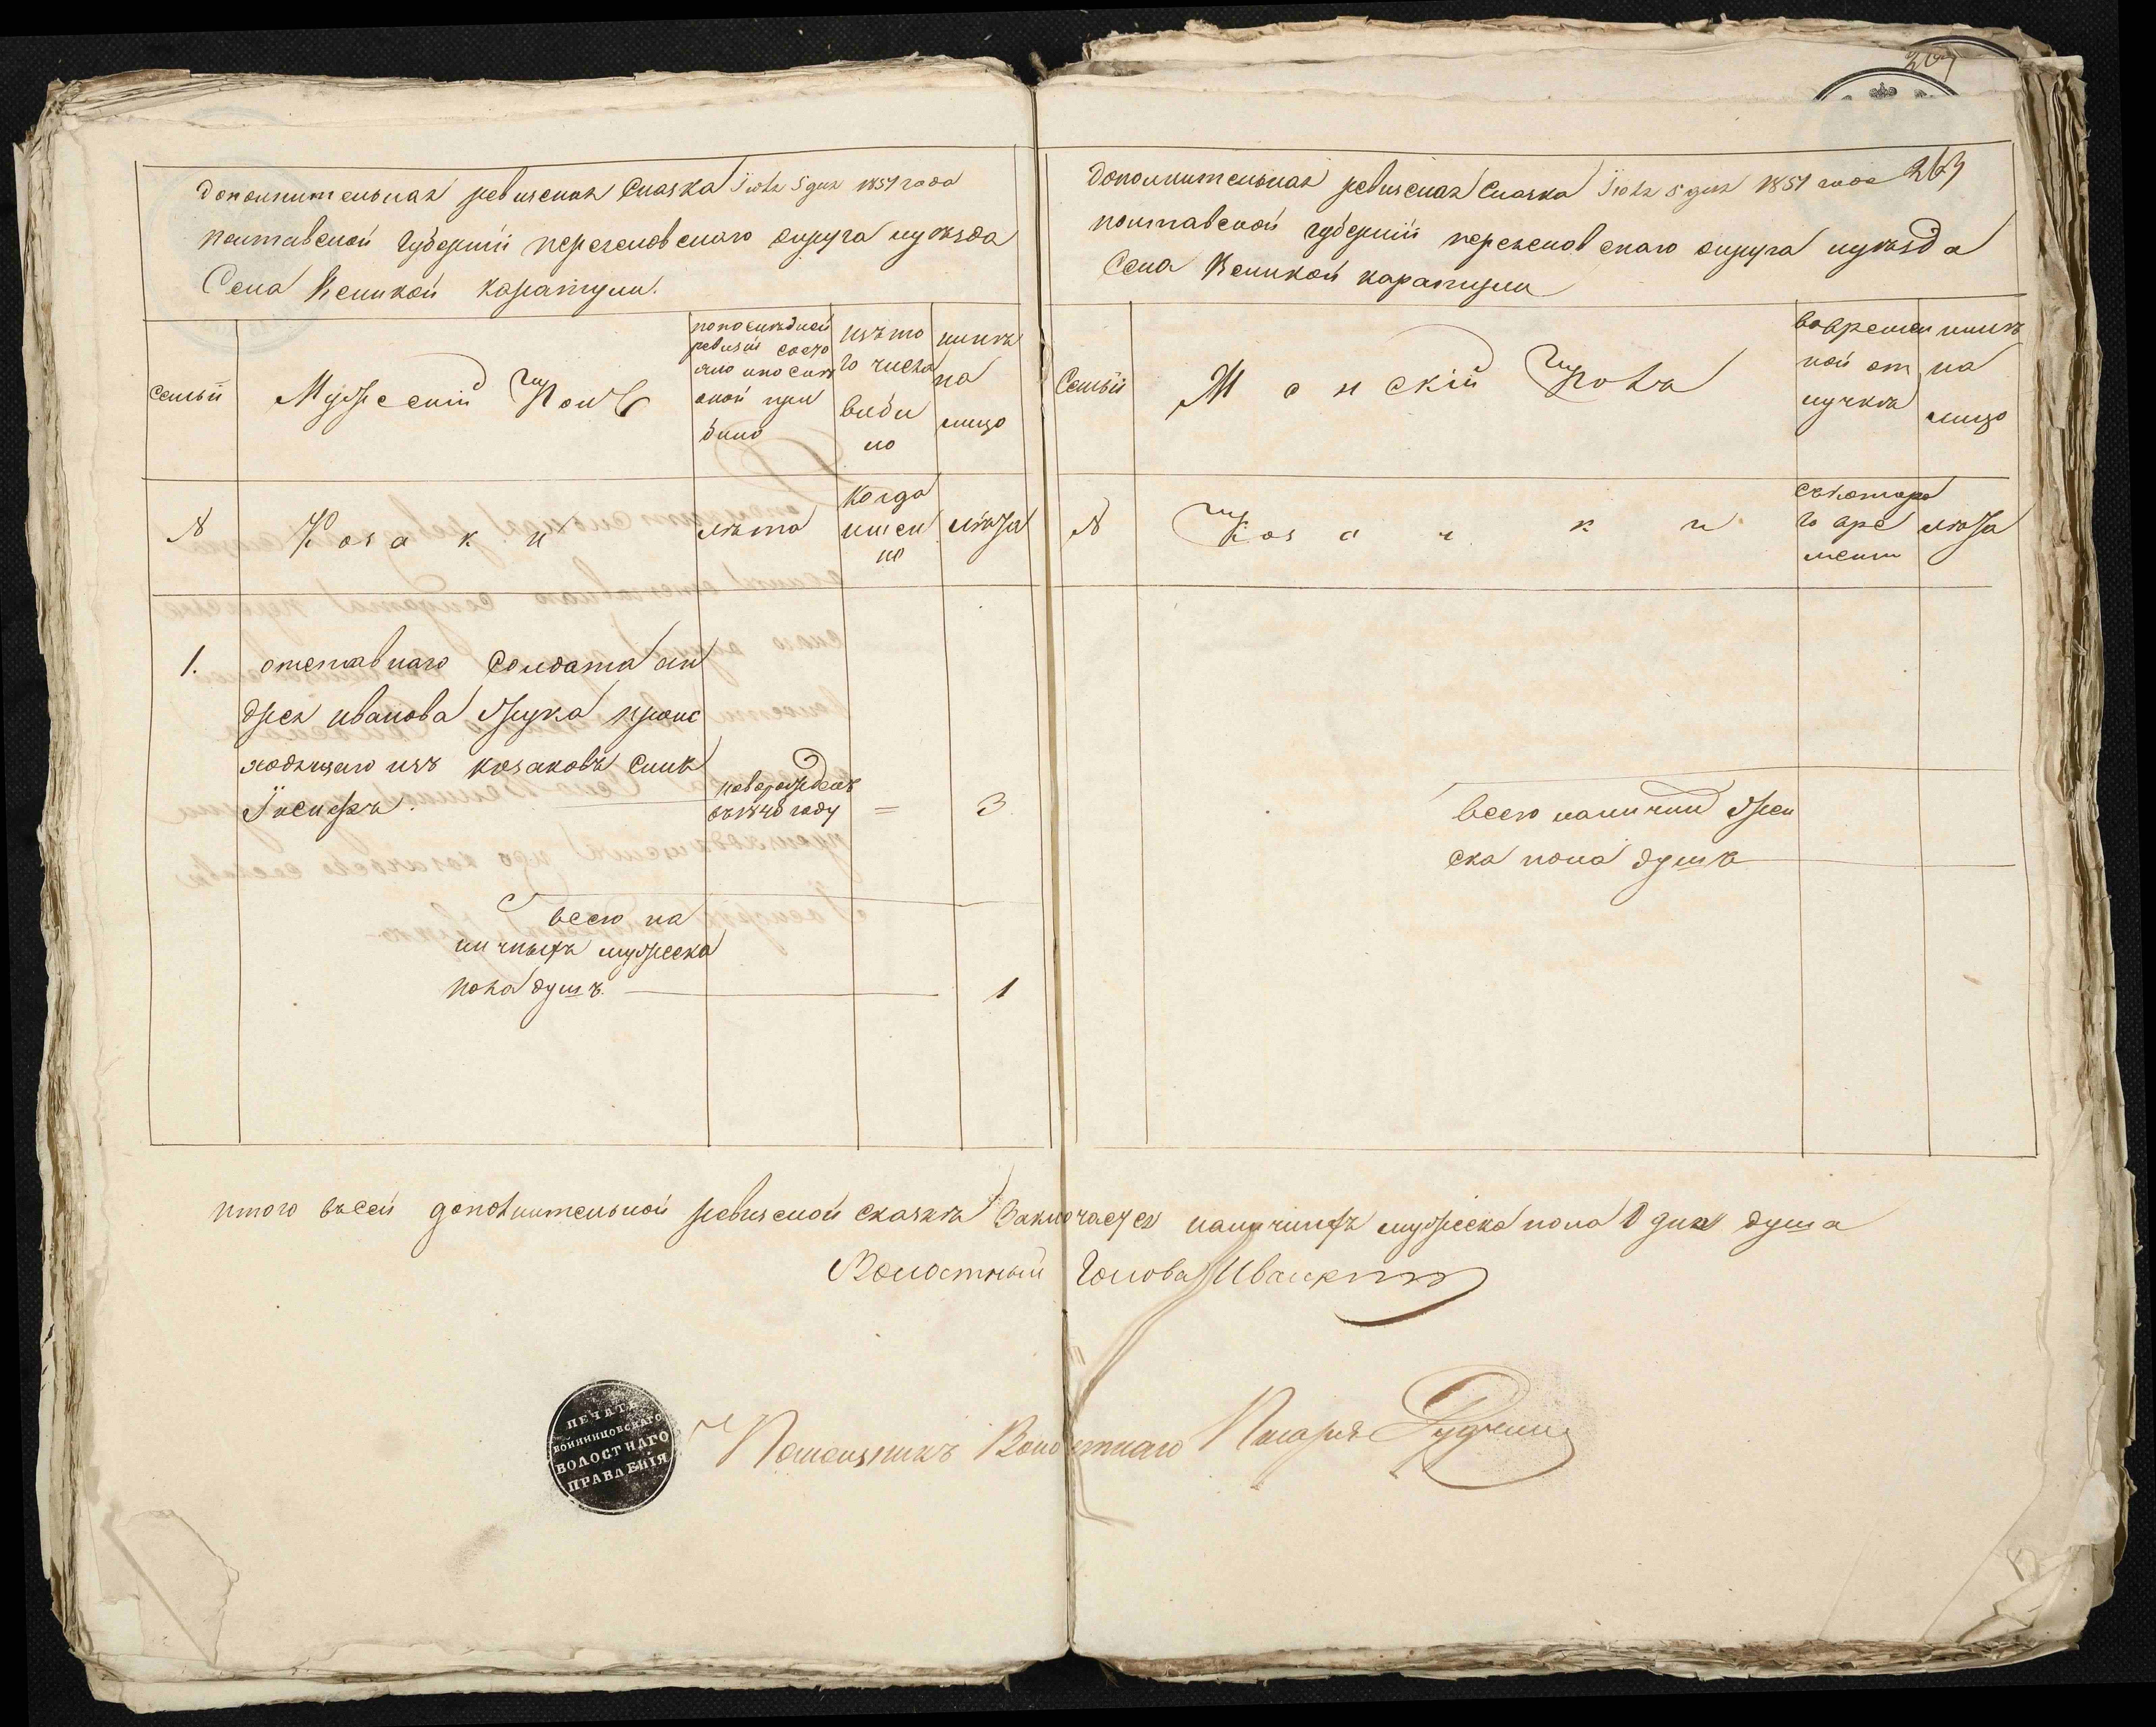 Дополнительная ревизская Сказка Іюля 5 дня 1851 года
полтавской Губерніи переяславскаго округа иуѣзда
Села Великой каратули.
семьи
Мужескій Полъ
попослѣдней
ревизіи состо
яло ипослѣ
оной при
было
изъ то
го числа
выбы
ло
нынѣ
на
лицо
№
Козаки
лѣта
Когда
имен
но
лѣта
1.
отставнаго Солдата ан
дрея иванова проис
ходящаго изъ козаковъ сынъ
Іосифъ.
новорожденъ
въ 1848 году
=
3
всего на
личныхъ мужеска
пола душъ.
1
Дополнительная ревизская Сказка Іюля 5 дня 1851 года
263
полтавской губерніи переяславскаго округа иуѣзда
Села Великой каратули
Семьи
Женскій Полъ
вовремен
ной от
лучкѣ
нынѣ
на
лицо
№
Козачки
скотора
го вре
мени
лѣта
всего налично жен
ска пола душъ
итого въсей дополнительной ревизской сказкѣ Заключается наличныхъ мужеска пола Одна душа
Волостный Голова
ПЕЧАТЬ
ВОЙНИНЦОВСКАГО
ВОЛОСТНАГО
ПРАВЛЕНІЯ
Помощникъ Волостнаго Писаря